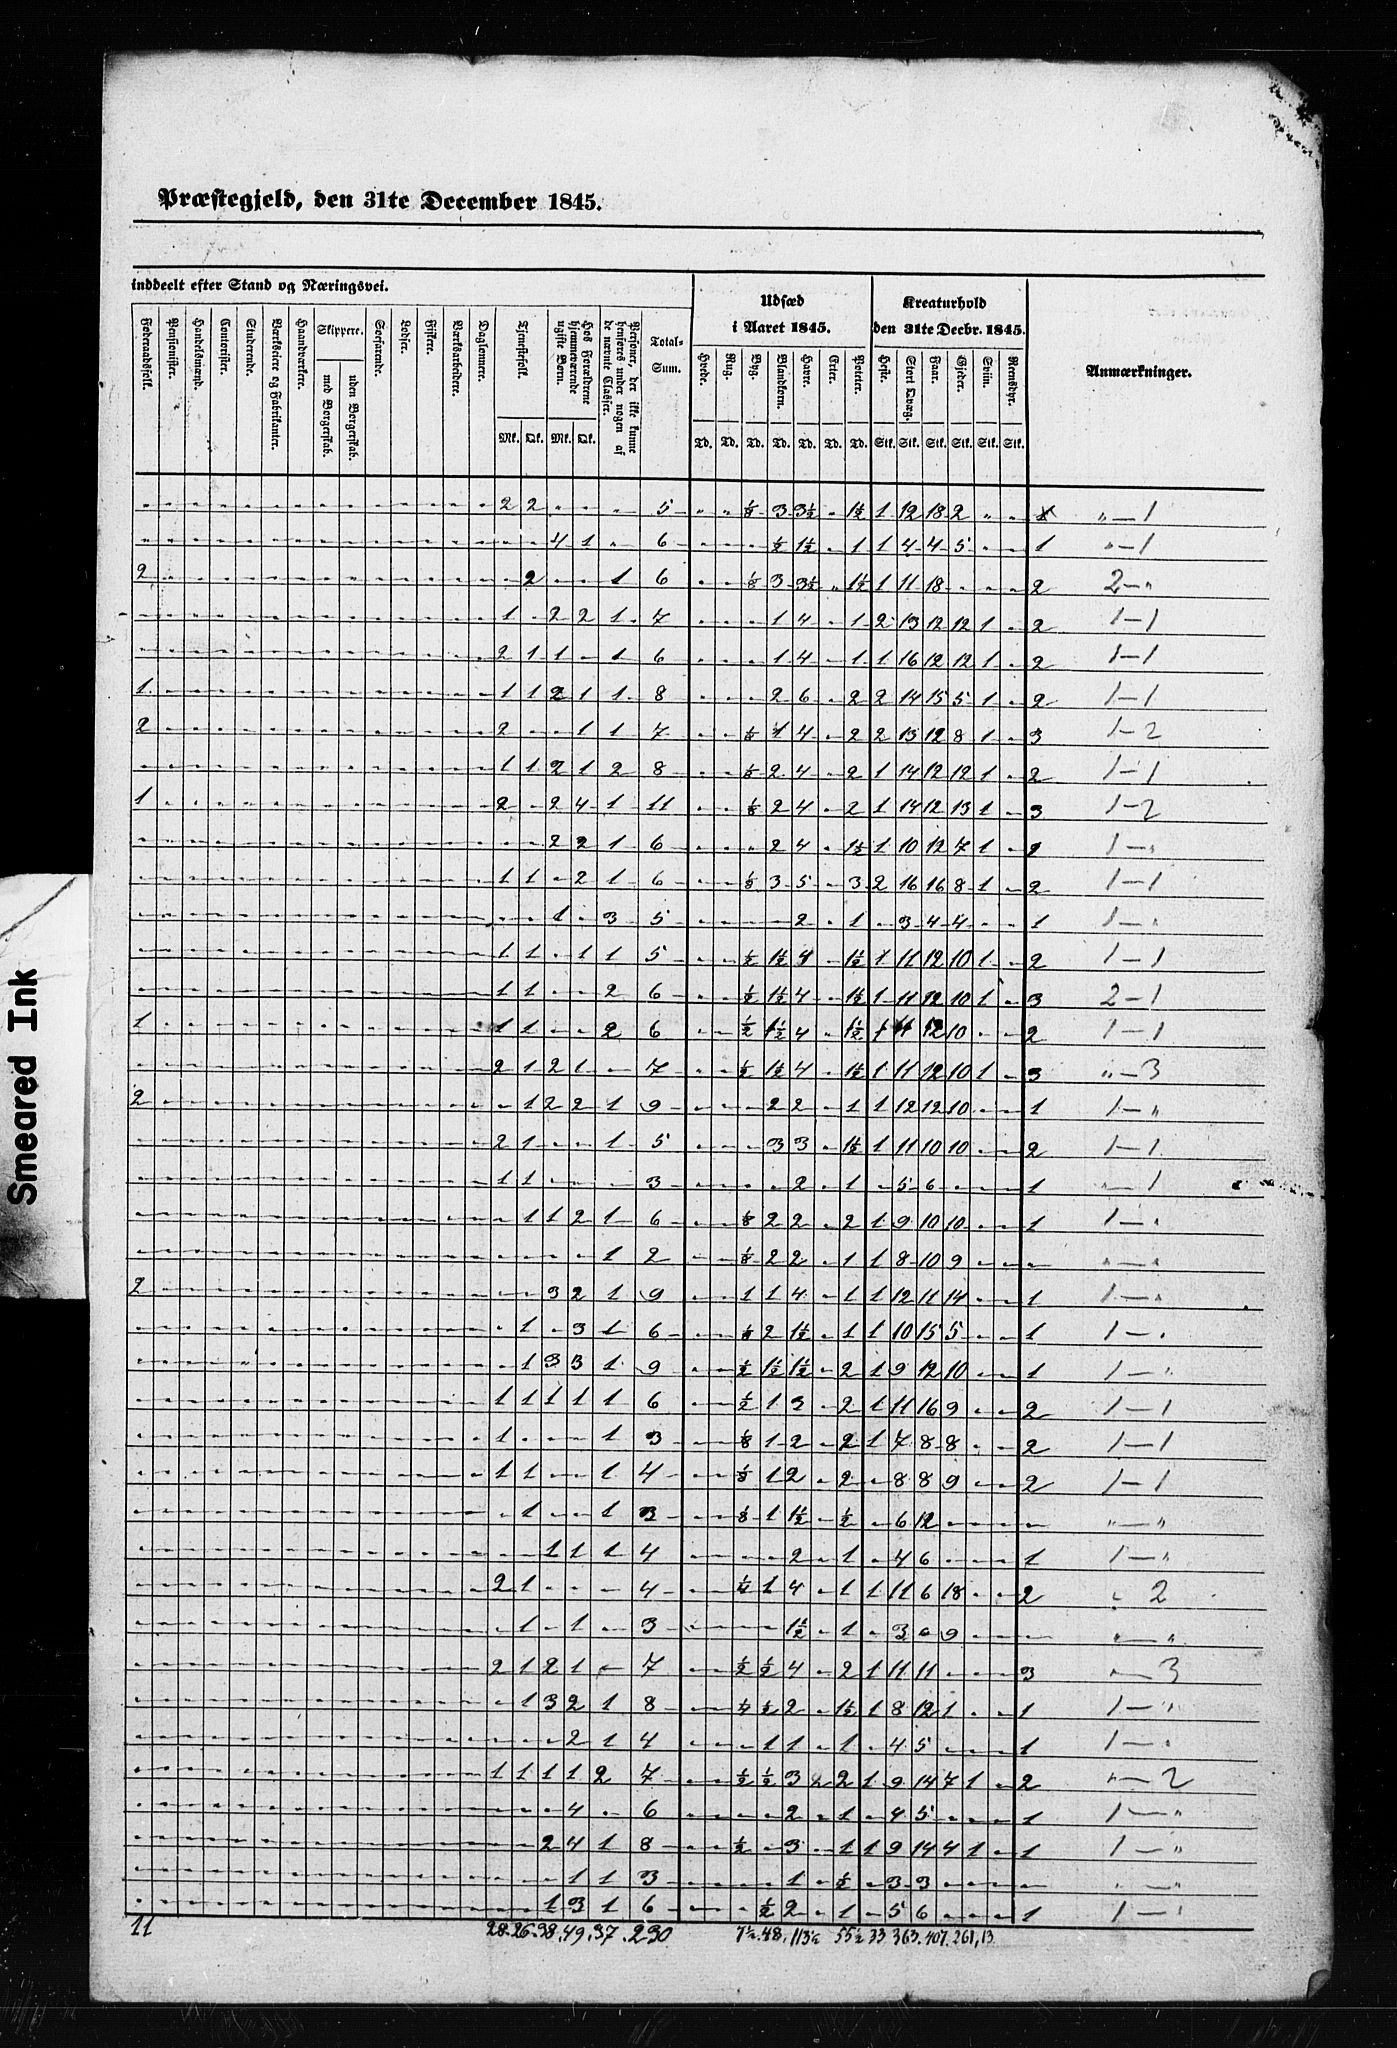 Præstegjeld, den 31te December 1845.
inddeelt efter Stand og Næringsvei.
Udsæd i Aaret 1845.
Kreaturhold den 31te Decbr. 1845.
Anmærkninger.
Føderaadsfolk.
Pensionister.
Handelsmænd.
Contorister.
Studerende.
Værkseiere og Fabrikanter.
Haandværkere.
Skippere.
med Borgerskab.
uden Borgerskab.
Soefarende.
Lodser.
Fiskere.
Værksarbeidere.
Daglønnere.
Tjenestefolk.
Hos Forældrene hjemmeværende ugifte Børn.
Personer, der ikke kunne henføres under nogen af de nævnte Classer.
Total-Sum.
Hvede.
Rug.
Byg.
Blandkorn.
Havre.
Erter.
Poteter.
Heste.
Stort Qvæg.
Faar.
Gjeder.
Sviin.
Reensdyr.
Mk. Qk. Mk. Qk.
Td. Td. Td. Td. Td. Td. Td. Stk. Stk. Stk. Stk. Stk. Stk.
2 2 5 ⅛ 3 3½ 1½ 1 12 18 2 " 1
4 1 6 ½ 1½ 1 1 4 4 5 1 " 1
2 2 1 6 ⅛ 3 3½ 1½ 1 11 18 2 2 "
1 2 2 1 7 1 4 1 2 13 12 12 1 2 1 1
2 1 1 1 6 1 4 1 1 16 12 12 1 2 1 1
1 1 1 2 1 1 8 2 6 2 2 14 15 5 1 2 1 1
2 2 1 1 7 ⅛ 1 4 2 2 13 12 8 1 3 1 2
1 1 2 1 2 8 ⅛ 2 4 2 1 14 12 12 1 2 1 1
1 2 2 4 1 11 ⅛ 2 4 2 1 14 12 13 1 3 1 2
2 2 1 6 2 4 1½ 1 10 12 7 1 1 "
1 1 2 1 6 ⅛ 3 5 3 2 16 16 8 1 2 1 1
1 3 5 2 1 3 4 4 1 1 "
1 1 1 1 5 ½ 1½ 4 1½ 1 11 12 10 1 2 1 1
1 1 2 6 ½ 1½ 4 1½ 1 11 12 10 1 3 2 1
1 1 1 2 6 ½ 1½ 4 1½ 1 11 12 10 2 1 1
2 1 2 1 7 ½ 1½ 4 1½ 1 11 12 10 1 3 " 3
2 1 2 2 1 9 2 2 1 1 12 12 10 1 1 "
2 1 1 5 3 3 1½ 1 11 10 10 2 1 1
1 1 3 2 1 5 6 1 " 1
1 1 2 1 6 ⅛ 2 2 2 1 9 10 10 1 1 "
1 2 ⅛ 2 2 1 1 8 10 9 " "
2 3 2 1 9 1 1 4 1 1 12 11 14 1 1 "
1 3 1 6 ⅛ 2 1½ 1 1 10 15 5 1 1 "
1 3 3 1 9 ½ 1½ 1½ 2 1 9 12 10 1 1 "
1 1 1 1 1 6 ½ 1 3 2 1 11 16 9 2 1 1
1 1 3 ⅛ 1 2 2 1 7 8 8 2 1 1
1 1 1 4 ⅛ 1 2 2 8 8 9 2 1 1
1 1 3 ⅛ 1 1½ ½ 6 12 " "
1 1 1 4 2 1 4 6 1 1 "
2 1 4 ¼ 1 4 1 1 11 6 18 2 " 2
1 1 3 1½ 1 3 9 " "
2 1 2 1 7 ½ ½ 4 2 1 11 11 3 " 3
1 3 2 1 8 ¼ ½ 2 1½ 1 8 12 1 1 1 "
2 1 4 1 1 1 4 5 1 1 "
1 1 1 1 2 7 ½ ½ 3 2 1 9 14 7 1 2 " 2
4 6 2 1 4 5 1 1 "
2 4 1 8 ½ 3 1 1 9 14 4 1 1 1 "
1 1 3 1 ½ 3 3 " "
1 3 1 6 ½ 2 1 5 6 1 1 "
11 28. 26. 38. 49. 37. 230 7½. 48. 113½ 55½ 33 363. 407. 261, 13
Smeared Ink